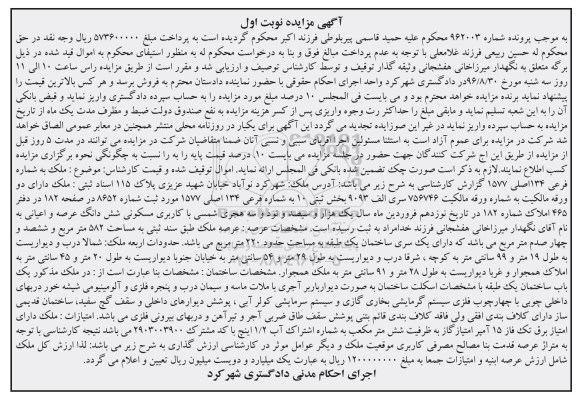 آگهی مزایده نوبت اول
به موجب پرونده شماره ۹۶۲۰۰۳ محکوم علیه حمید قاسمی پیربلوطی فرزند اکبر محکوم گردیده است به پرداخت مبلغ ۵۷۳۶۰۰۰۰۰ ریال وجه نقد در حق
محکوم له حسین ربیعی فرزند غلامعلی با توجه به عدم پرداخت مبالغ فوق و بنا به درخواست محکوم له به منظور استیفای محکوم به اموال قید شده در ذیل
برگه متعلق به نگهدار میرزاخانی هفشجانی وثیقه گذار توقیف و توسط کارشناس توصیف و ارزیابی شد و مقرر است از طریق مزایده راس ساعت ۱۰ الی ۱۱
روز سه شنبه مورخ ۹۶/۸/۳۰در دادگستری شهرکرد واحد اجرای احکام حقوقی با حضور نماینده دادستان محترم به فروش برسد و هر کس بالاترین قیمت را
پیشنهاد نماید برنده مزایده خواهد محترم بود و می بایست فی المجلس ۱۰ درصد مبلغ مورد مزایده را به حساب سپرده دادگستری واریز نماید و قبض بانکی
آن را به این شعبه تسلیم نماید و مابقی مبلغ را حداکثر رت وجوه واریزی پس از کسر هزینه مزایده به نفع صندوق دولت ضبط و مظرف مدت یک ماه از تاریخ
مزایده به حساب سپرده واریز نماید در غیر این صوزایده تجدید می گردد این آگهی برای یکبار در روزنامه محلی منتشر همچنین در معابر عمومی الصاق خواهد
شد شرکت در مزایده برای عموم آزاد است به استثنا مسئولین و اقربای سببی و نسبی آنان ضمنا متقاضیان شرکت در مزایده می توانند در مدت ۵ روز قبل
از مزایده از طریق این اج شرکت کنندگان جهت حضور در جلسه مزایده می بایست ۱۰ درصد قیمت پایه را به را نسبت به چگونگی نحوه برگزاری مزایده
کسب اطلاع نمایند.لازم به ذکر است صورت چک تضمین شده بانکی فی المجلس ارائه نماید. اموال توقیف شده و قیمت کارشناس: موضوع : ملک به شماره
فرعی ۱۳۴اصلی ۱۵۷۷ گزارش کارشناسی به شرح زیر می باشد: آدرس ملک: شهرکرد نوآباد خیابان شهید عزیزی پلاک ۱۱۵ اسناد ثبتی : ملک دارای دو
ورقه مالکیت به شماره ورقه مالکیت ۷۵۶۷۴۶ سری الف ۹۰۹۳ بخش ثبتی ۱۰ به شماره فرعی ۱۳۴ اصلی ۱۵۷۷ مورد ثبت شماره ۸۶۵۲ در صفحه ۱۸۲ در دفتر
۴۶۵ املاک شماره ۱۸۲ در تاریخ نوزدهم فروردین ماه سال یک هزار و سیصد و نود و سه هجری شمسی با کاربری مسکونی شش دانگ عرصه و اعیانی به
نام آقای نگهدار میرزاخانی هفشجانی فرزند خدامراد به ثبت رسیده است. مشخصات عرصه : عرصه ملک طبق سند ثبتی به مساحت ۵۸۲ متر مربع و ششصد و
چهار صدم متر مربع می باشد که دارای یک سری ساختمان یک طبقه به مساحت حدود ۲۲۰ متر مربع می باشد. حدودات اربعه ملک: شمالا درب و دیواریست
به طول ۱۹ متر و ۹۹ سانتی متر به کوچه ، شرقا درب و دیواریست به طول ۲۶ متر و ۵۴ سانتی متر به خیابان جنوبا دیواریست به طول ۲۰ متر و ۴۵ سانتی متر به
املاک همجوار و غربا دیواریست به طول ۲۸ متر و ۹۱ سانتی متر به ملک همجوار. مشخصات ساختمان : مشخصات بنا عبارت است از : در ملک مذکور یک
باب ساختمان یک طبقه با مشخصات اسکلت ساختمان به صورت دیوارباربر آجری با ملات ماسه و سیمان درب و پنجره فلزی و آلومینیومی شیشه خور دربهای
داخلی چوبی با چهارچوب فلزی سیستم گرمایشی بخاری گازی و سیستم سرمایشی کولر آبی ، پوشش دیوارهای داخلی و سقف گچ سفید، ساختمان قدیمی
ساز دارای کلاف بندی افقی ولی فاقد کلاف بندی قائم بتنی پوشش سقف طاق ضربی آجر و تیرآهن و دربهای بیرونی فلزی می باشد. امتیازات : ملک دارای
امتیاز برق تک فاز ۱۵ آمپر امتیازگاز به ظرفیت شش متر مکعب به شماره اشتراک آب ۱/۲ اینچ با کد مشترک ۲۹۰۳۰۰۳۹۰۰ می باشد نتیجه کارشناسی با توجه
به متراژ عرصه قدمت بنا مصالح مصرفی کاربری موقعیت ملک و دیگر عوامل موثر در کارشناسی ارزش گذاری به شرح زیر می باشد: لذا ارزش کل ملک
شامل ارزش عرصه ابنیه و امتیازات جمعا به مبلغ ۱۲۰۰۰۰۰۰۰۰ ریال به عبارت یک میلیارد و دویست میلیون ریال تعیین و اعلام می گردد.
اجرای احکام مدنی دادگستری شهرکرد